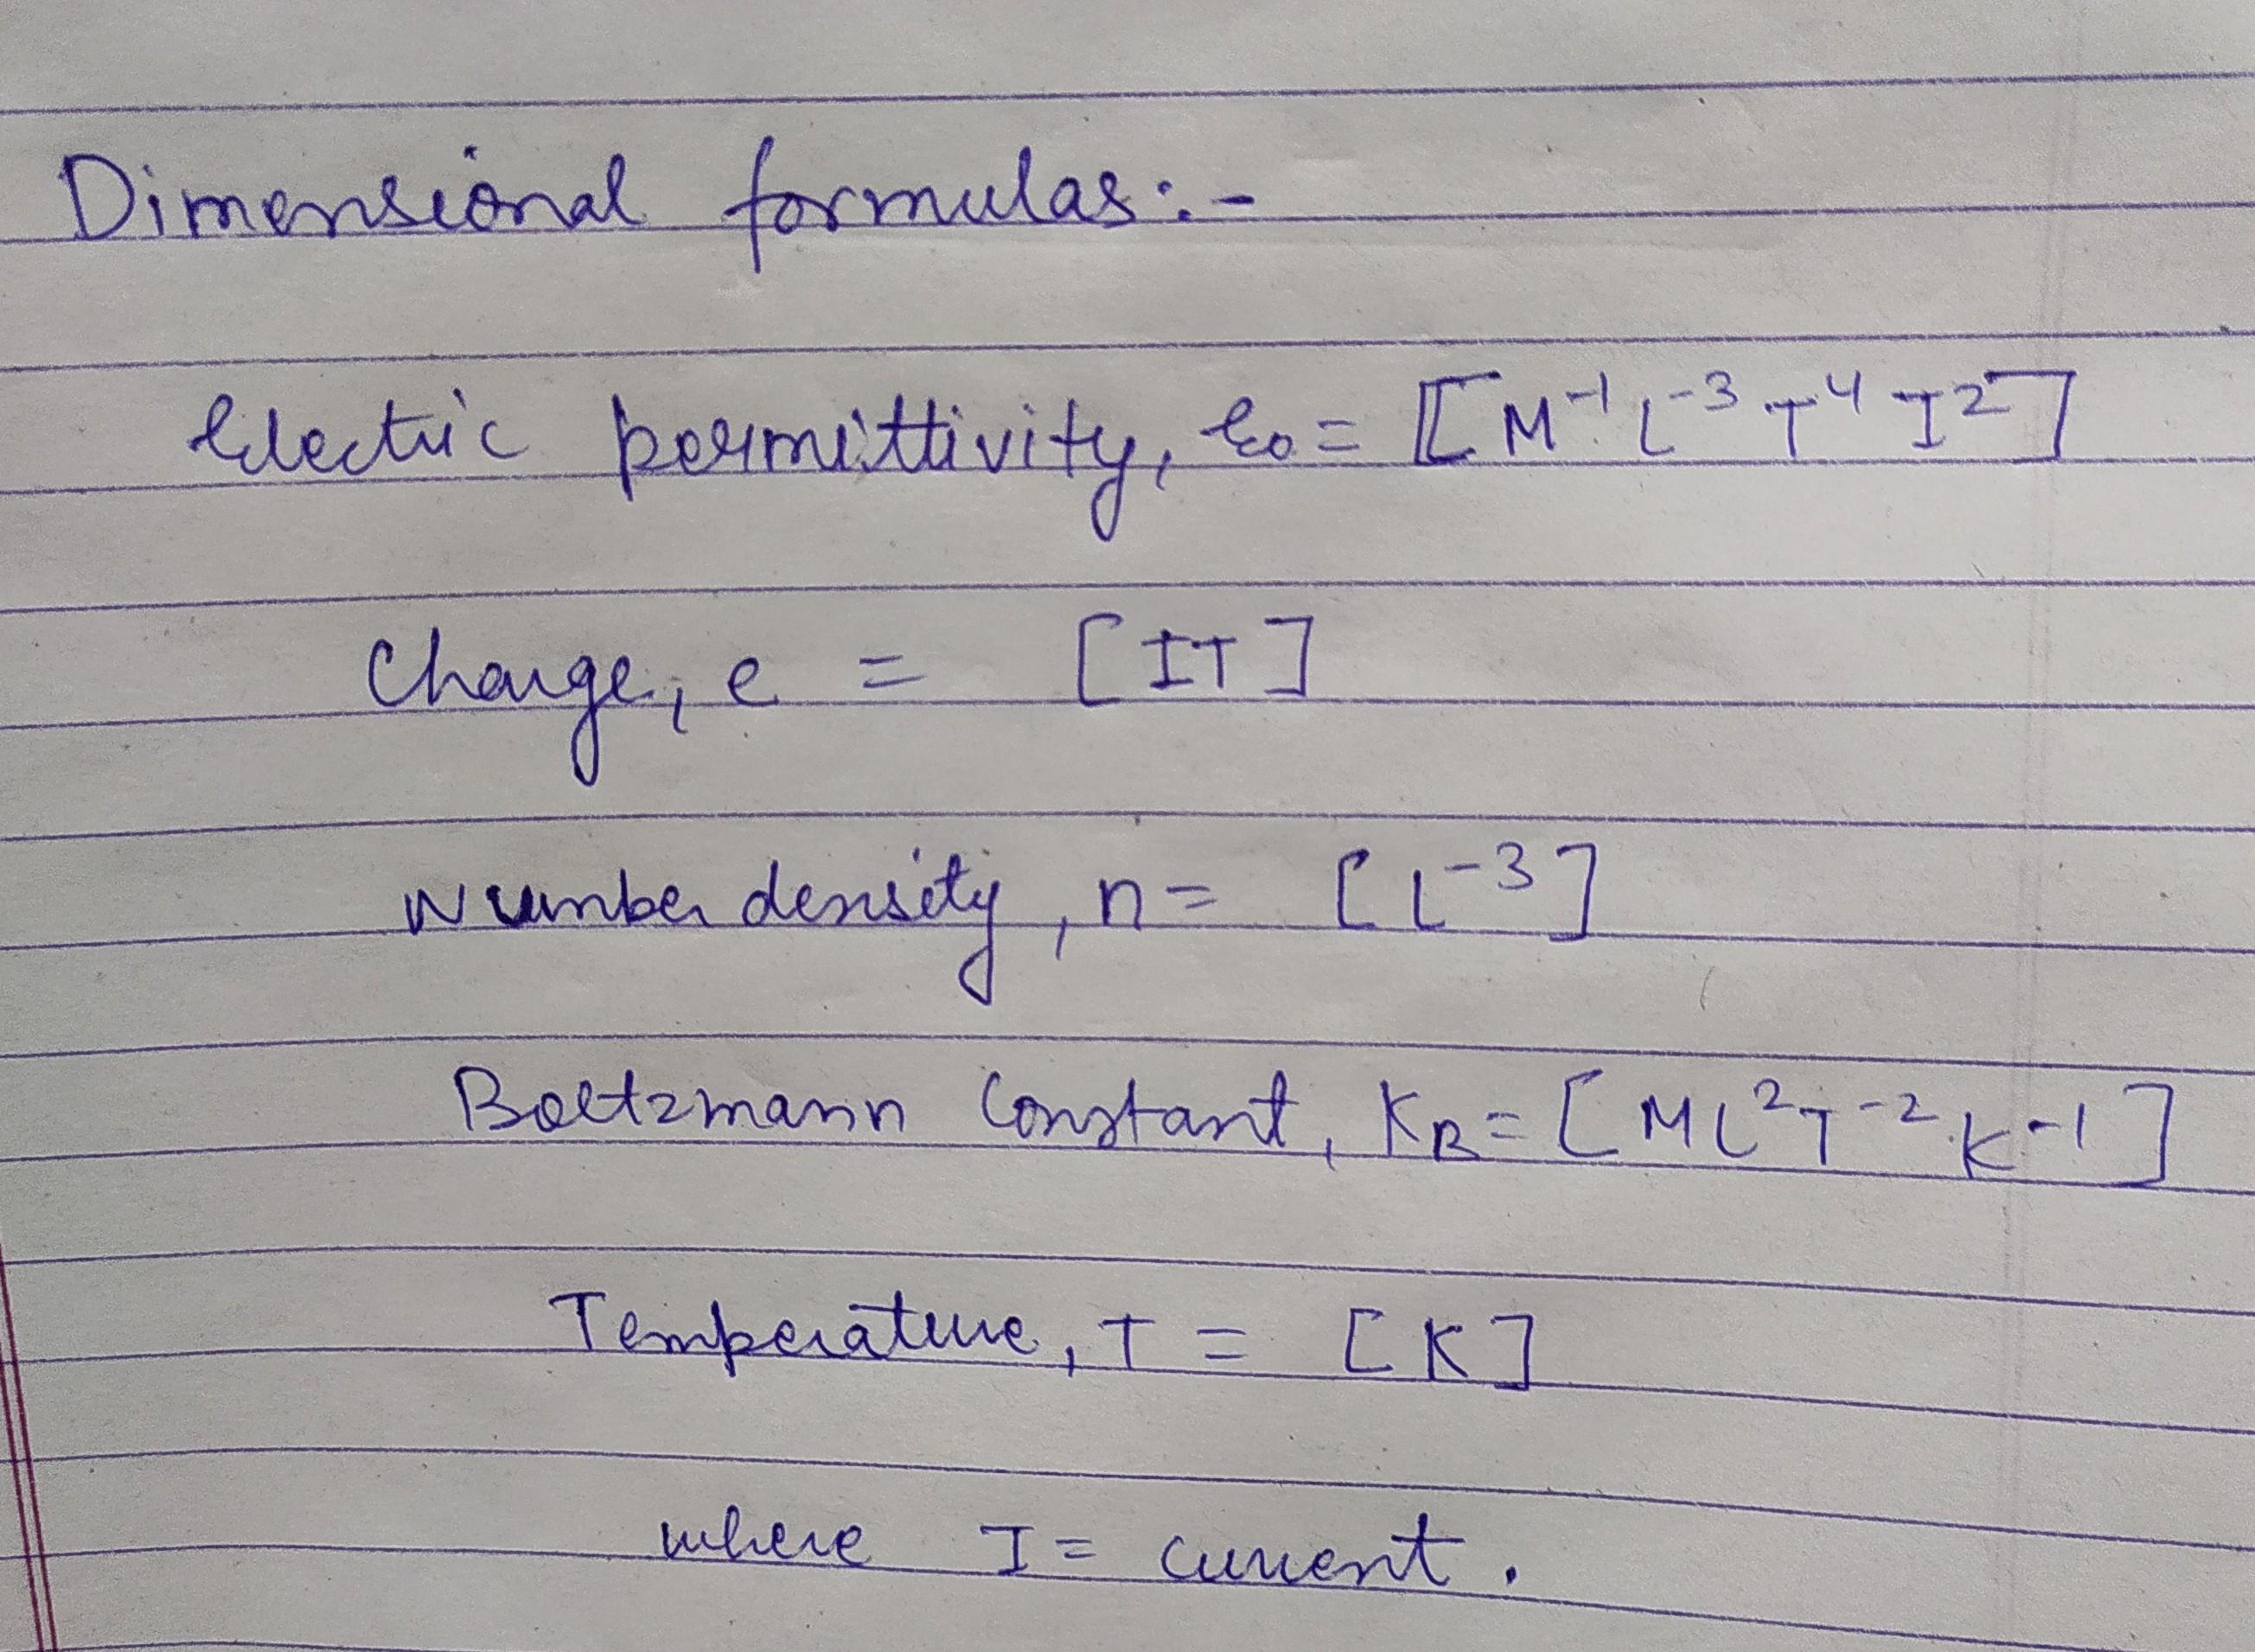 Dimensional formulas:-
Electric permittivity, ε₀ = [M⁻¹ L⁻³ T⁴ I²]
Charge, e = [IT]
Number density, n = [L⁻³]
Boltzmann Constant, K_B = [ML²T⁻²K⁻¹]
Temperature, T = [K]
where I = current.